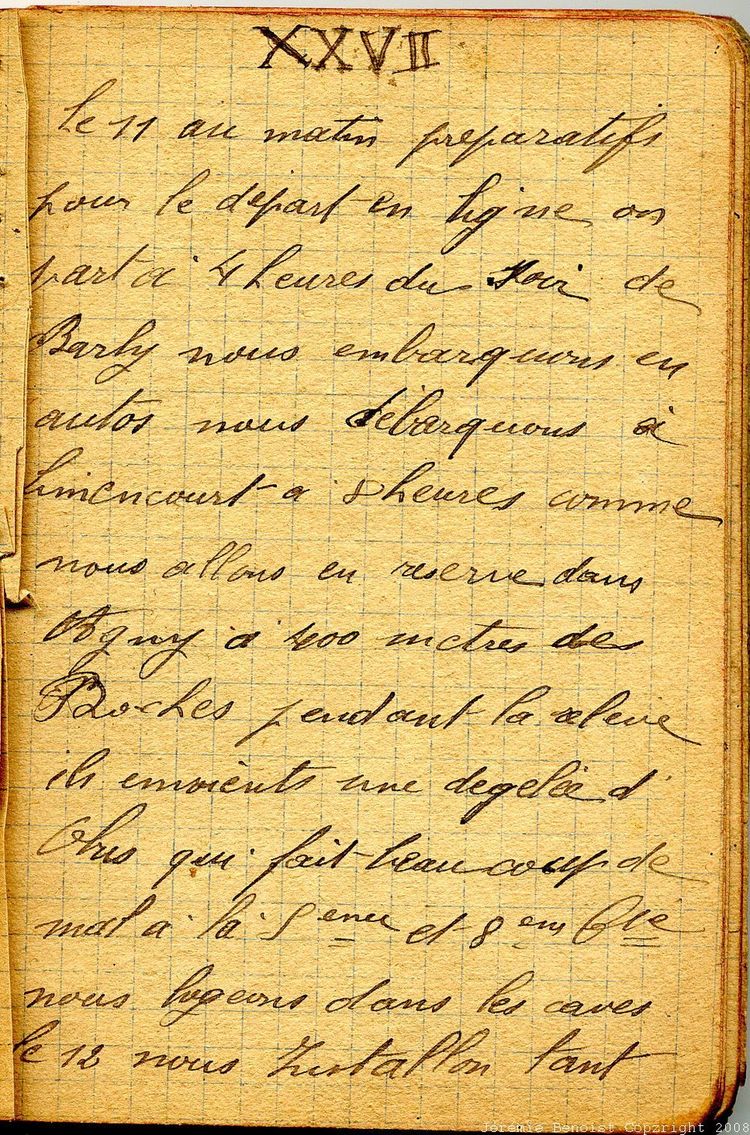 XXVII
le 11 au matin preparatifs
pour le départ en ligne on
part a 4 heures du soir de
Barly nous embarquons en
autos nous débarquons a
Simencourt a 8 heures comme
nous allons en reserve dans
Agny a 400 metres des
Boches pendant la releve
ils envoients une degelée d'
Obus qui fait beaucoup de
mal a la 5eme et 8em Cie
nous logeons dans les caves
le 12 nous Installon tant
Jeremie Benoist Copzright 2008